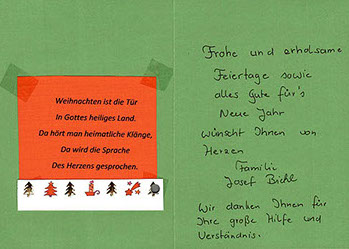 Weihnachten ist die Tür
In Gottes heiliges Land.
Da hört man heimatliche Klänge,
Da wird die Sprache
Des Herzens gesprochen.
Frohe und erholsame
Feiertage sowie
alles Gute für's
Neue Jahr
wünscht Ihnen von
Herzen
Familie
Josef Bichl
Wir danken Ihnen für
Ihre große Hilfe und
Verständnis.